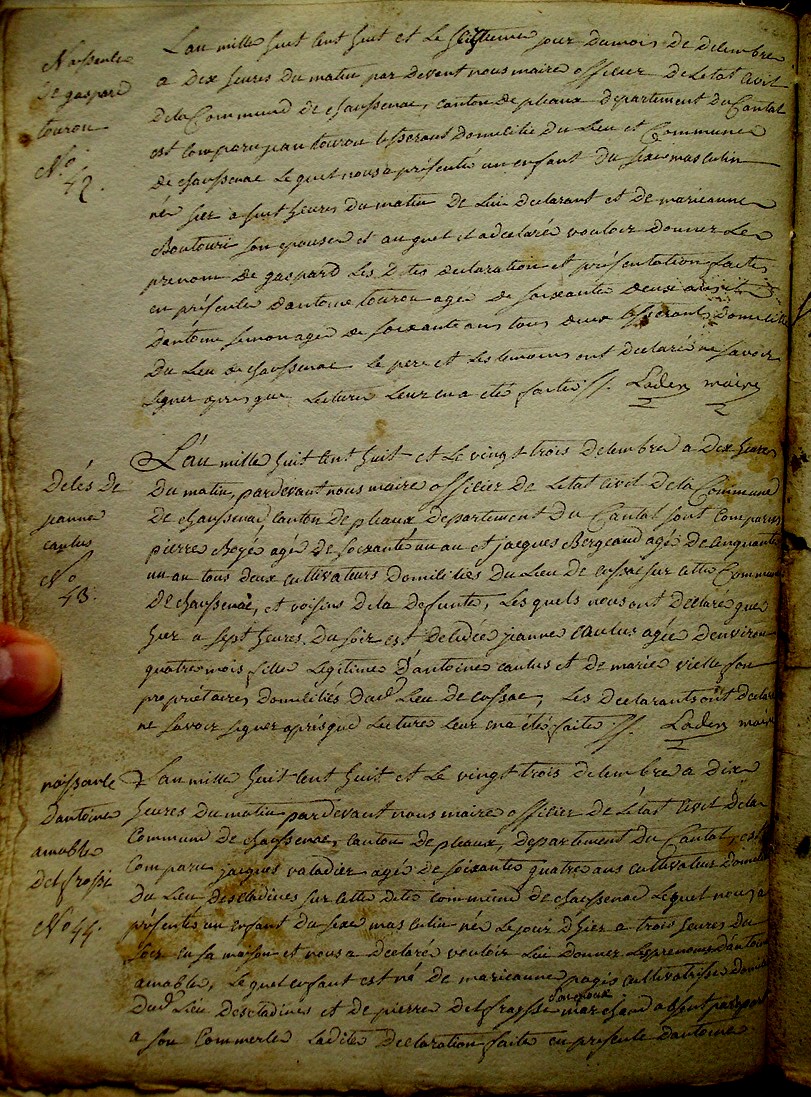 Naissence
de gaspard
tourou
No
42.
L'an mille huit cent huit et le jour du mois de decembre
a dix heures du matin par devent nous maire officier de letat civil
de la Commune de chaussenac, canton de pleaux departement du Cantal
est comparu jean tourou tisserant domicilié du Lieu et Commune
de chaussenac Lequel nous a présenté un enfant du sexe masculin
née hier a huit heures du matin de Lui declarant et de marieanne
son epouse et auquel il a declaré vouloir donner Le
prenom de gaspard Les dites declaration et présentation faites
en présence d'antoine tourou agé de soixante deux ans et
d'antoine agé de soixante ans tous deux tisserants domicilié
du Lieu de chaussenac Le pere et Les temoins ont declaré ne savoir
signer apres que Lecture Leur en a été faite //. Laden maire
Décés de
jeanne
caulus
No
43.
L'an mille huit cent huit et Le vingt trois decembre a dix heures
du matin, pardevant nous maire officier de Letat civil de la Commune
de chaussenac, canton de pleaux departement du Cantal sont comparus
pierre Boyé agé de soixante un an et jacques Bergeaud agé de cinquante
un an tous deux cultivateurs domiciliés du Lieu de cossac sur cette Commune
de chaussenac, et voisins de la defunte, Les quels nous ont declaré que
hier a sept heures du soir est decedée jeanne caulus agée d'environ
quatre mois fille Légitime d'antoine caulus et de marie viellefon
propriétaires domiciliés dud. Lieu de cossac, Les declarants ont declaré
ne savoir signer aprés que Lecture Leur en a été faite //. Laden maire
naissance
d'antoine
amable
delfraissi
No 44.
L'an mille huit cent huit et Le vingt trois decembre a dix
heures du matin pardevant nous maire officier de Létat civil de la
Commune de chaussenac, canton de pleaux, departement du Cantal, est
comparu jacques valadier agé de soixante quatre ans cultivateur domicilié
du Lieu descladines sur cette dite commune de chaussenac Lequel nous a
présenté un enfant du sexe masculin née Le jour d'hier a trois heures du
soir en sa maison et nous a declaré vouloir Lui donner Les prenoms d'antoine
amable, Lequel enfant est né de marieanne pagis cultivatrice
dud. Lieu Descladines et de pierre delfraysse son epoux marchand absent
a son Commerce Ladite declaration faite en presence d'antoine